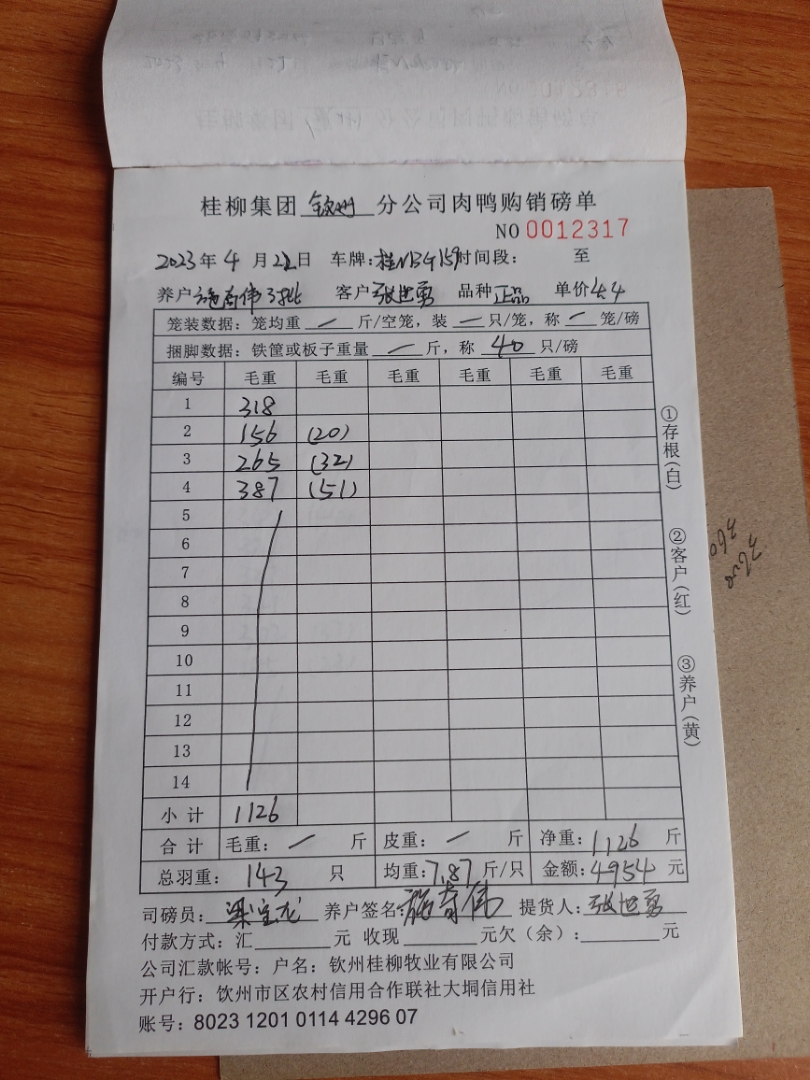 桂柳集团 钦州 分公司肉鸭购销磅单
NO 0012317
2023年4月22日 车牌:桂NBG159 时间段: 至
养户 施奇伟3批 客户 张世勇 品种 正品 单价 4.4
笼装数据:笼均重 一 斤/空笼,装 一 只/笼,称 一 笼/磅
捆脚数据:铁筐或板子重量 一 斤,称 40 只/磅
编号 毛重 毛重 毛重 毛重 毛重 毛重
1 318
2 156 (20)
3 265 (32)
4 387 (51)
5
6
7
8
9
10
11
12
13
14
小计 1126
合计 毛重: 一 斤 皮重: 一 斤 净重: 1126 斤
总羽重: 143 只 均重: 7.87 斤/只 金额: 4954 元
司磅员: 梁宝龙 养户签名: 施奇伟 提货人: 张世勇
付款方式:汇 元 收现 元欠(余): 元
公司汇款帐号:户名:钦州桂柳牧业有限公司
开户行:饮州市区农村信用合作联社大垌信用社
账号:8023 1201 0114 4296 07
①存根(白)
②客户(红)
③养户(黄)